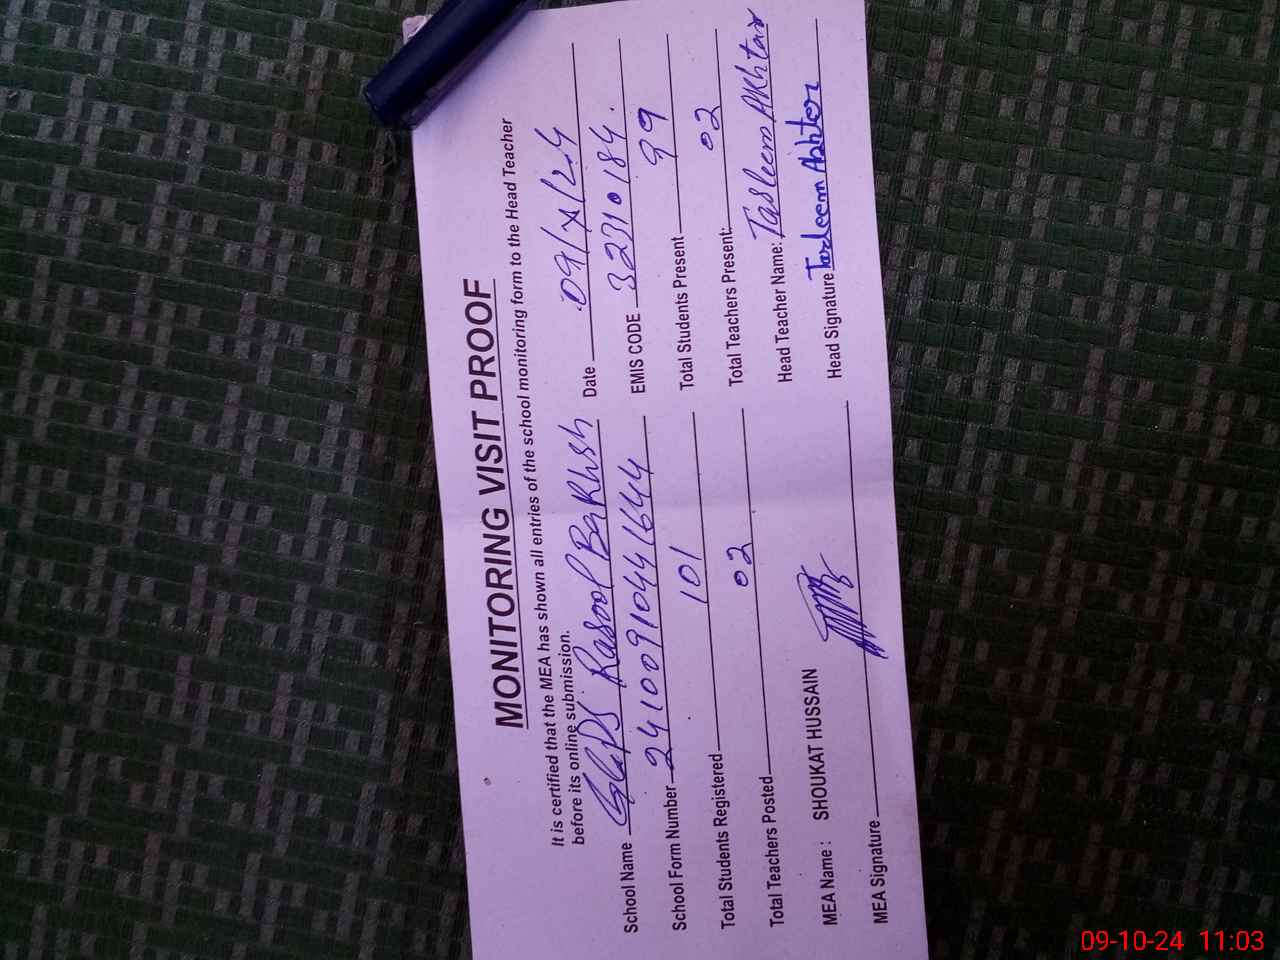 MONITORING VISIT PROOF
It is certified that the MEA has shown all entries of the school monitoring form to the Head Teacher
before its online submission.
School Name GGPS Rasool Bakhsh Date 09/X/24
School Form Number 24100910441644 EMIS CODE 32310184.
Total Students Registered 101 Total Students Present 99
Total Teachers Posted 02 Total Teachers Present: 02
MEA Name : SHOUKAT HUSSAIN Head Teacher Name: Tasleem Akhtar
MEA Signature Head Signature Tasleem Akhter
09-10-24 11:03